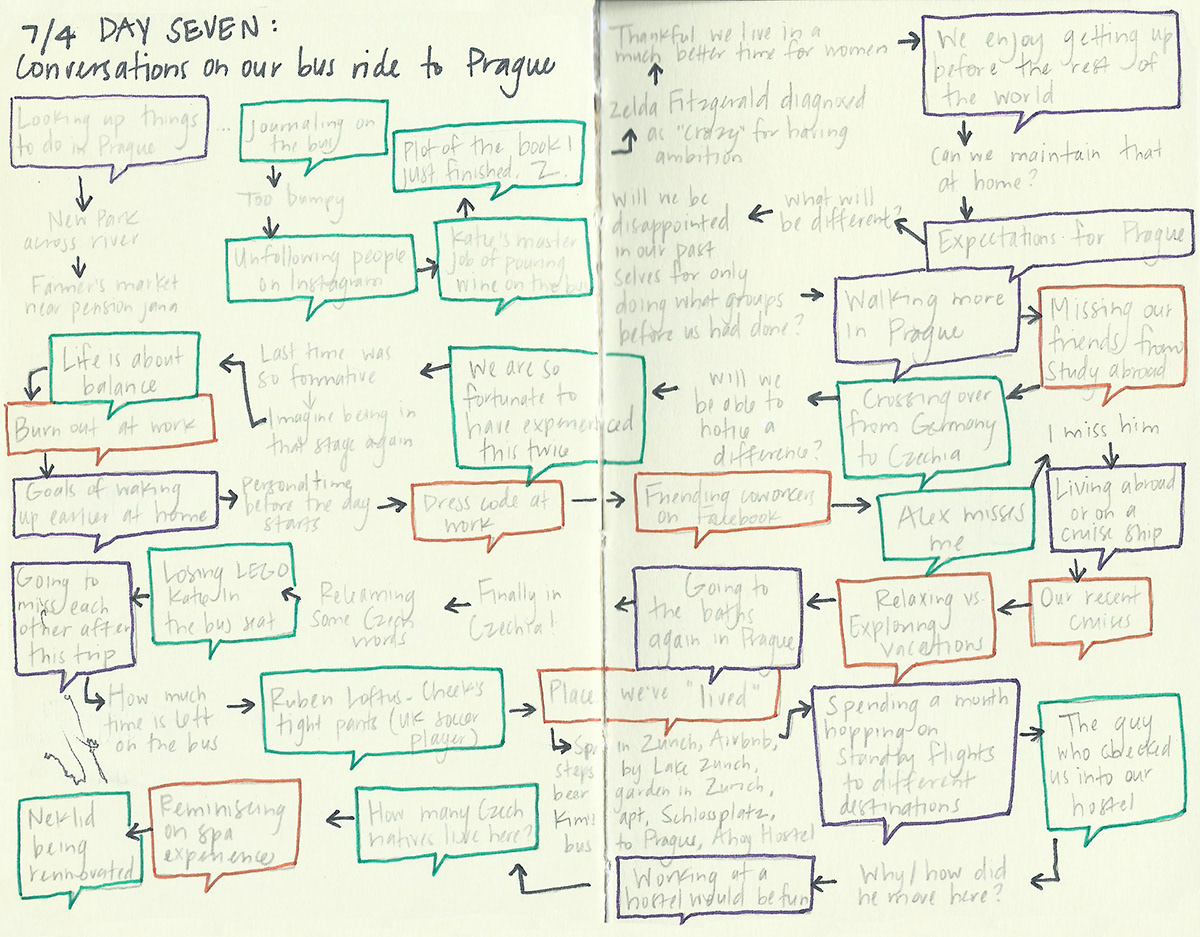 7/4 DAY SEVEN:
Conversations on our bus ride to Prague
Looking up things
to do in Prague
...
New Park
across river
Farmer's market
near pension jana
Journaling on
the bus
Too bumpy
Unfollowing people
on Instagram
Katie's master
job of pouring
wine on the bus
Plot of the book I
just finished, Z.
Zelda Fitzgerald diagnosed
as "crazy" for having
ambition
Thankful we live in a
much better time for women
We enjoy getting up
before the rest of
the world
Can we maintain that
at home?
Expectations for Prague
What will
be different?
Will we be
disappointed
in our past
selves for only
doing what groups
before us had done?
Walking more
in Prague
Missing our
friends from
study abroad
Crossing over
from Germany
to Czechia
Will we
be able to
notice a
difference?
We are so
fortunate to
have experienced
this twice
Last time was
so formative
Imagine being in
that stage again
Life is about
balance
Burn out at work
Goals of waking
up earlier at home
Personal time
before the day
starts
Dress code at
work
Friending coworkers
on Facebook
Alex misses
me
I miss him
Living abroad
or on a
cruise ship
Our recent
cruises
Relaxing vs.
Exploring
vacations
Going to
the baths
again in Prague
Finally in
Czechia!
Relearning
some Czech
words
Losing LEGO
Katie in
the bus seat
Going to
miss each
other after
this trip
How much
time is left
on the bus
Ruben Loftus-Cheek's
tight pants (UK soccer
player)
Place we've "lived"
in Zurich, Airbnb,
steps by Lake Zurich,
bear garden in Zurich,
apt, Schlossplatz,
bus to Prague, Ahoy Hostel
Spending a month
hopping on
standby flights
to different
destinations
The guy
who checked
us into our
hostel
Why/how did
he move here?
Working at a
hostel would be fun
How many Czech
natives live here?
Reminiscing
on spa
experience
Neklid
being
rennovated